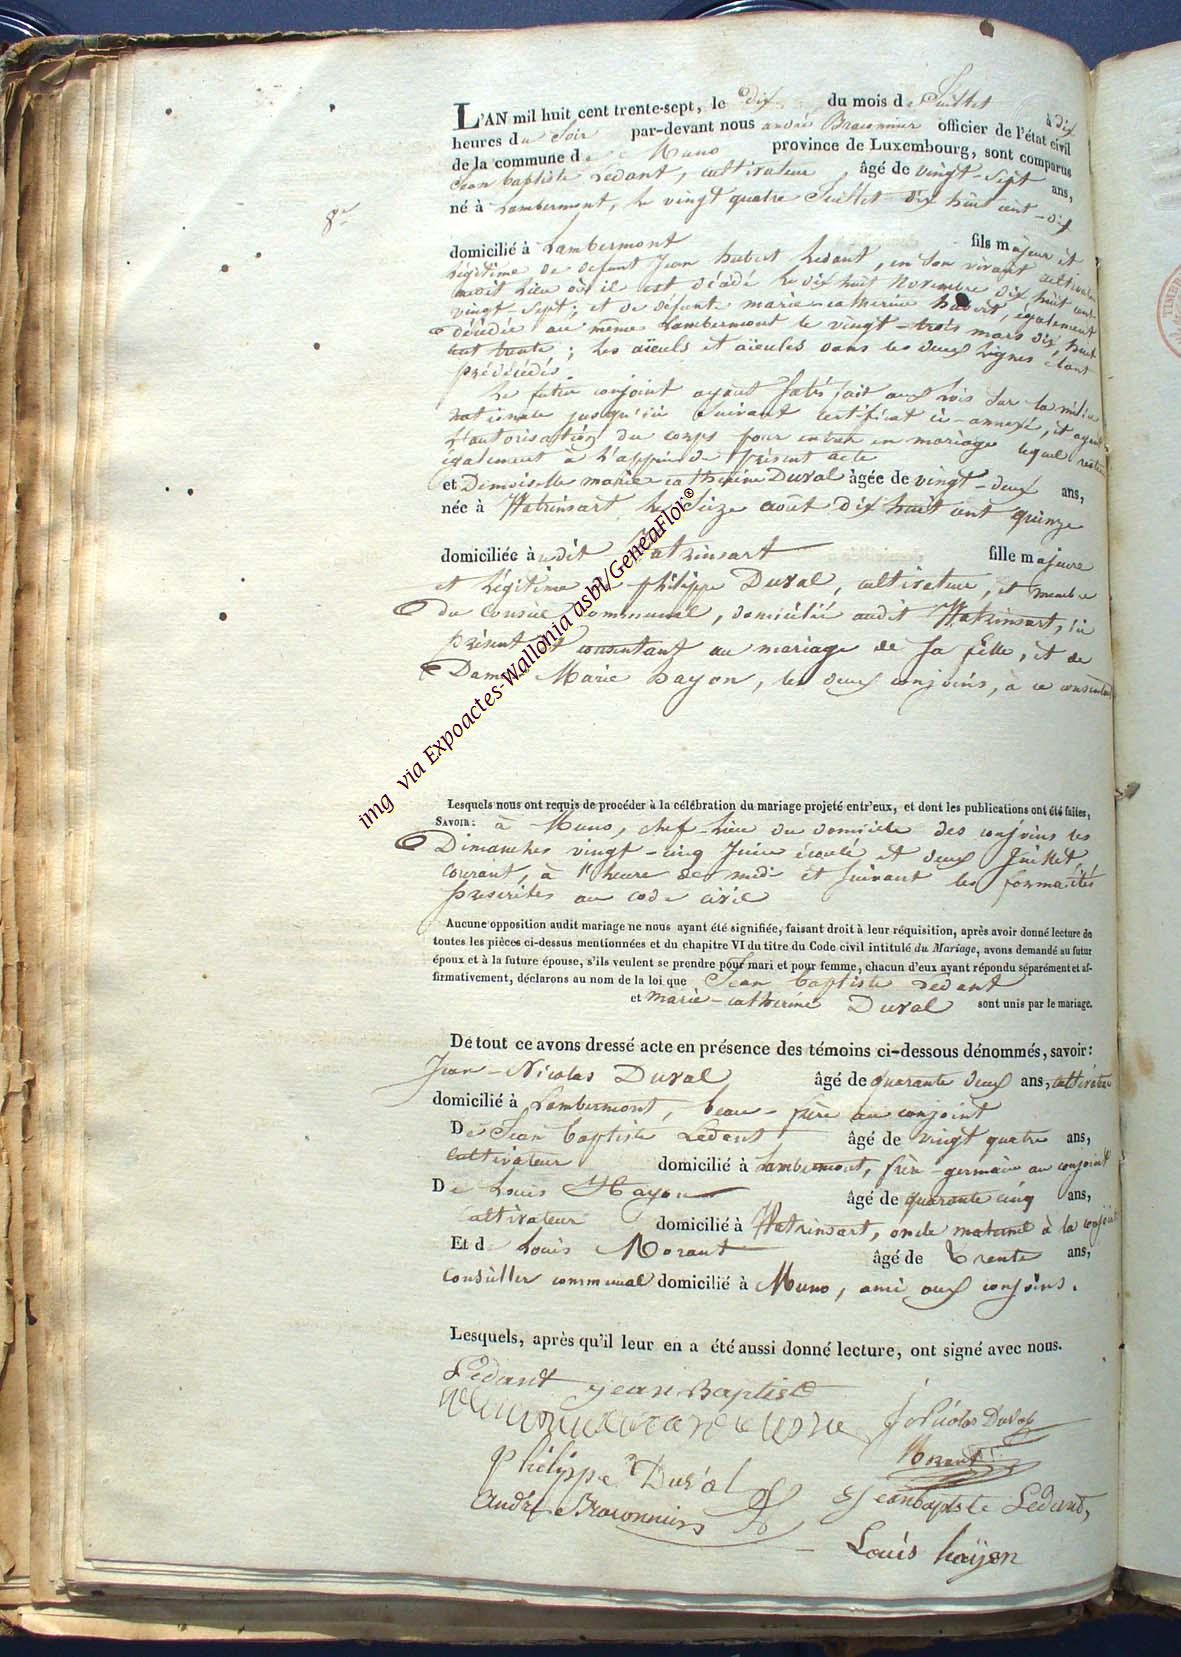 L'AN mil huit cent trente-sept, le dix du mois de Juillet à dix
heures du Soir par-devant nous andré Braconnier officier de l'état civil
de la commune de Muno province de Luxembourg, sont comparus
Jean baptiste Ledant, cultivateur, âgé de vingt-sept ans,
né à Lambermont, le vingt quatre Juillet dix huit cent-dix
8e
domicilié à Lambermont fils majeur et
légitime de défunt Jean hubert Ledant, en son vivant cultivateur
audit lieu où il est décédé le dix huit Novembre dix huit cent
vingt-sept; et de défunte marie-catherine hubert, également
décédée au même Lambermont le vingt-trois mars dix huit
cent trente; les aïeuls et aïeules dans les deux lignes étant
prédécédés
Le futur conjoint ayant satisfait aux lois sur la milice
nationale jusqu'ici suivant certificat ci-annexé, et ayant
l'autorisation du corps pour entrer en mariage lequel restera
également à l'appui du présent acte
et Demoiselle marie catherine Duval âgée de vingt-deux ans,
née à Watrinsart le Seize août dix huit cent quinze
domiciliée audit Watrinsart fille majeure
et légitime de philippe Duval, cultivateur, et membre
du Conseil Communal, domicilié audit Watrinsart, ici
présent et consentant au mariage de sa fille, et de
Dame Marie hayon, les deux conjoins, à ce consentant
Lesquels nous ont requis de procéder à la célébration du mariage projeté entr'eux, et dont les publications ont été faites,
SAVOIR: à Muno, chef-lieu du domicile des conjoins les
Dimanches vingt-cinq Juin écoulé et deux Juillet
courant, à l'heure de midi et suivant les formalités
prescrites au code civil
Aucune opposition audit mariage ne nous ayant été signifiée, faisant droit à leur réquisition, après avoir donné lecture de
toutes les pièces ci-dessus mentionnées et du chapitre VI du titre du Code civil intitulé du Mariage, avons demandé au futur
époux et à la future épouse, s'ils veulent se prendre pour mari et pour femme, chacun d'eux ayant répondu séparément et af-
firmativement, déclarons au nom de la loi que Jean baptiste Ledant
et marie-catherine Duval sont unis par le mariage.
De tout ce avons dressé acte en présence des témoins ci-dessous dénommés, savoir:
Jean-Nicolas Duval âgé de quarante deux ans, cultivateur
domicilié à Lambermont, beau-frère au conjoint
De Jean baptiste Ledant âgé de vingt quatre ans,
cultivateur domicilié à Lambermont, frère-germain au conjoint
De Louis Hayon âgé de quarante cinq ans,
cultivateur domicilié à Watrinsart, oncle maternel à la conjointe
Et de Louis Morant âgé de trente ans,
Conseiller communal domicilié à Muno, ami aux conjoins.
Lesquels, après qu'il leur en a été aussi donné lecture, ont signé avec nous.
Ledant jean Baptiste
J Nicolas Duval
Morant
Philippe Duval
jeanbaptiste Ledant,
André Braconnier
Louis hayon
img via Expoactes-Wallonia asbl/GeneaFlor®
TIMBRE